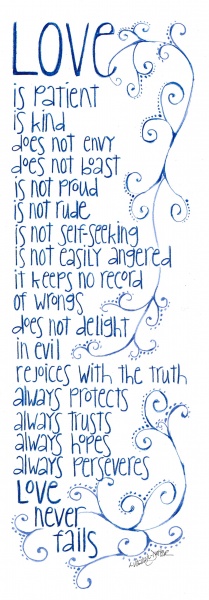 LOVE
is patient
is kind
does not envy
does not boast
is not proud
is not rude
is not self-seeking
is not easily angered
it keeps no record
of wrongs
does not delight
in evil
rejoices with the truth
always protects
always trusts
always hopes
always perseveres
Love
never
fails